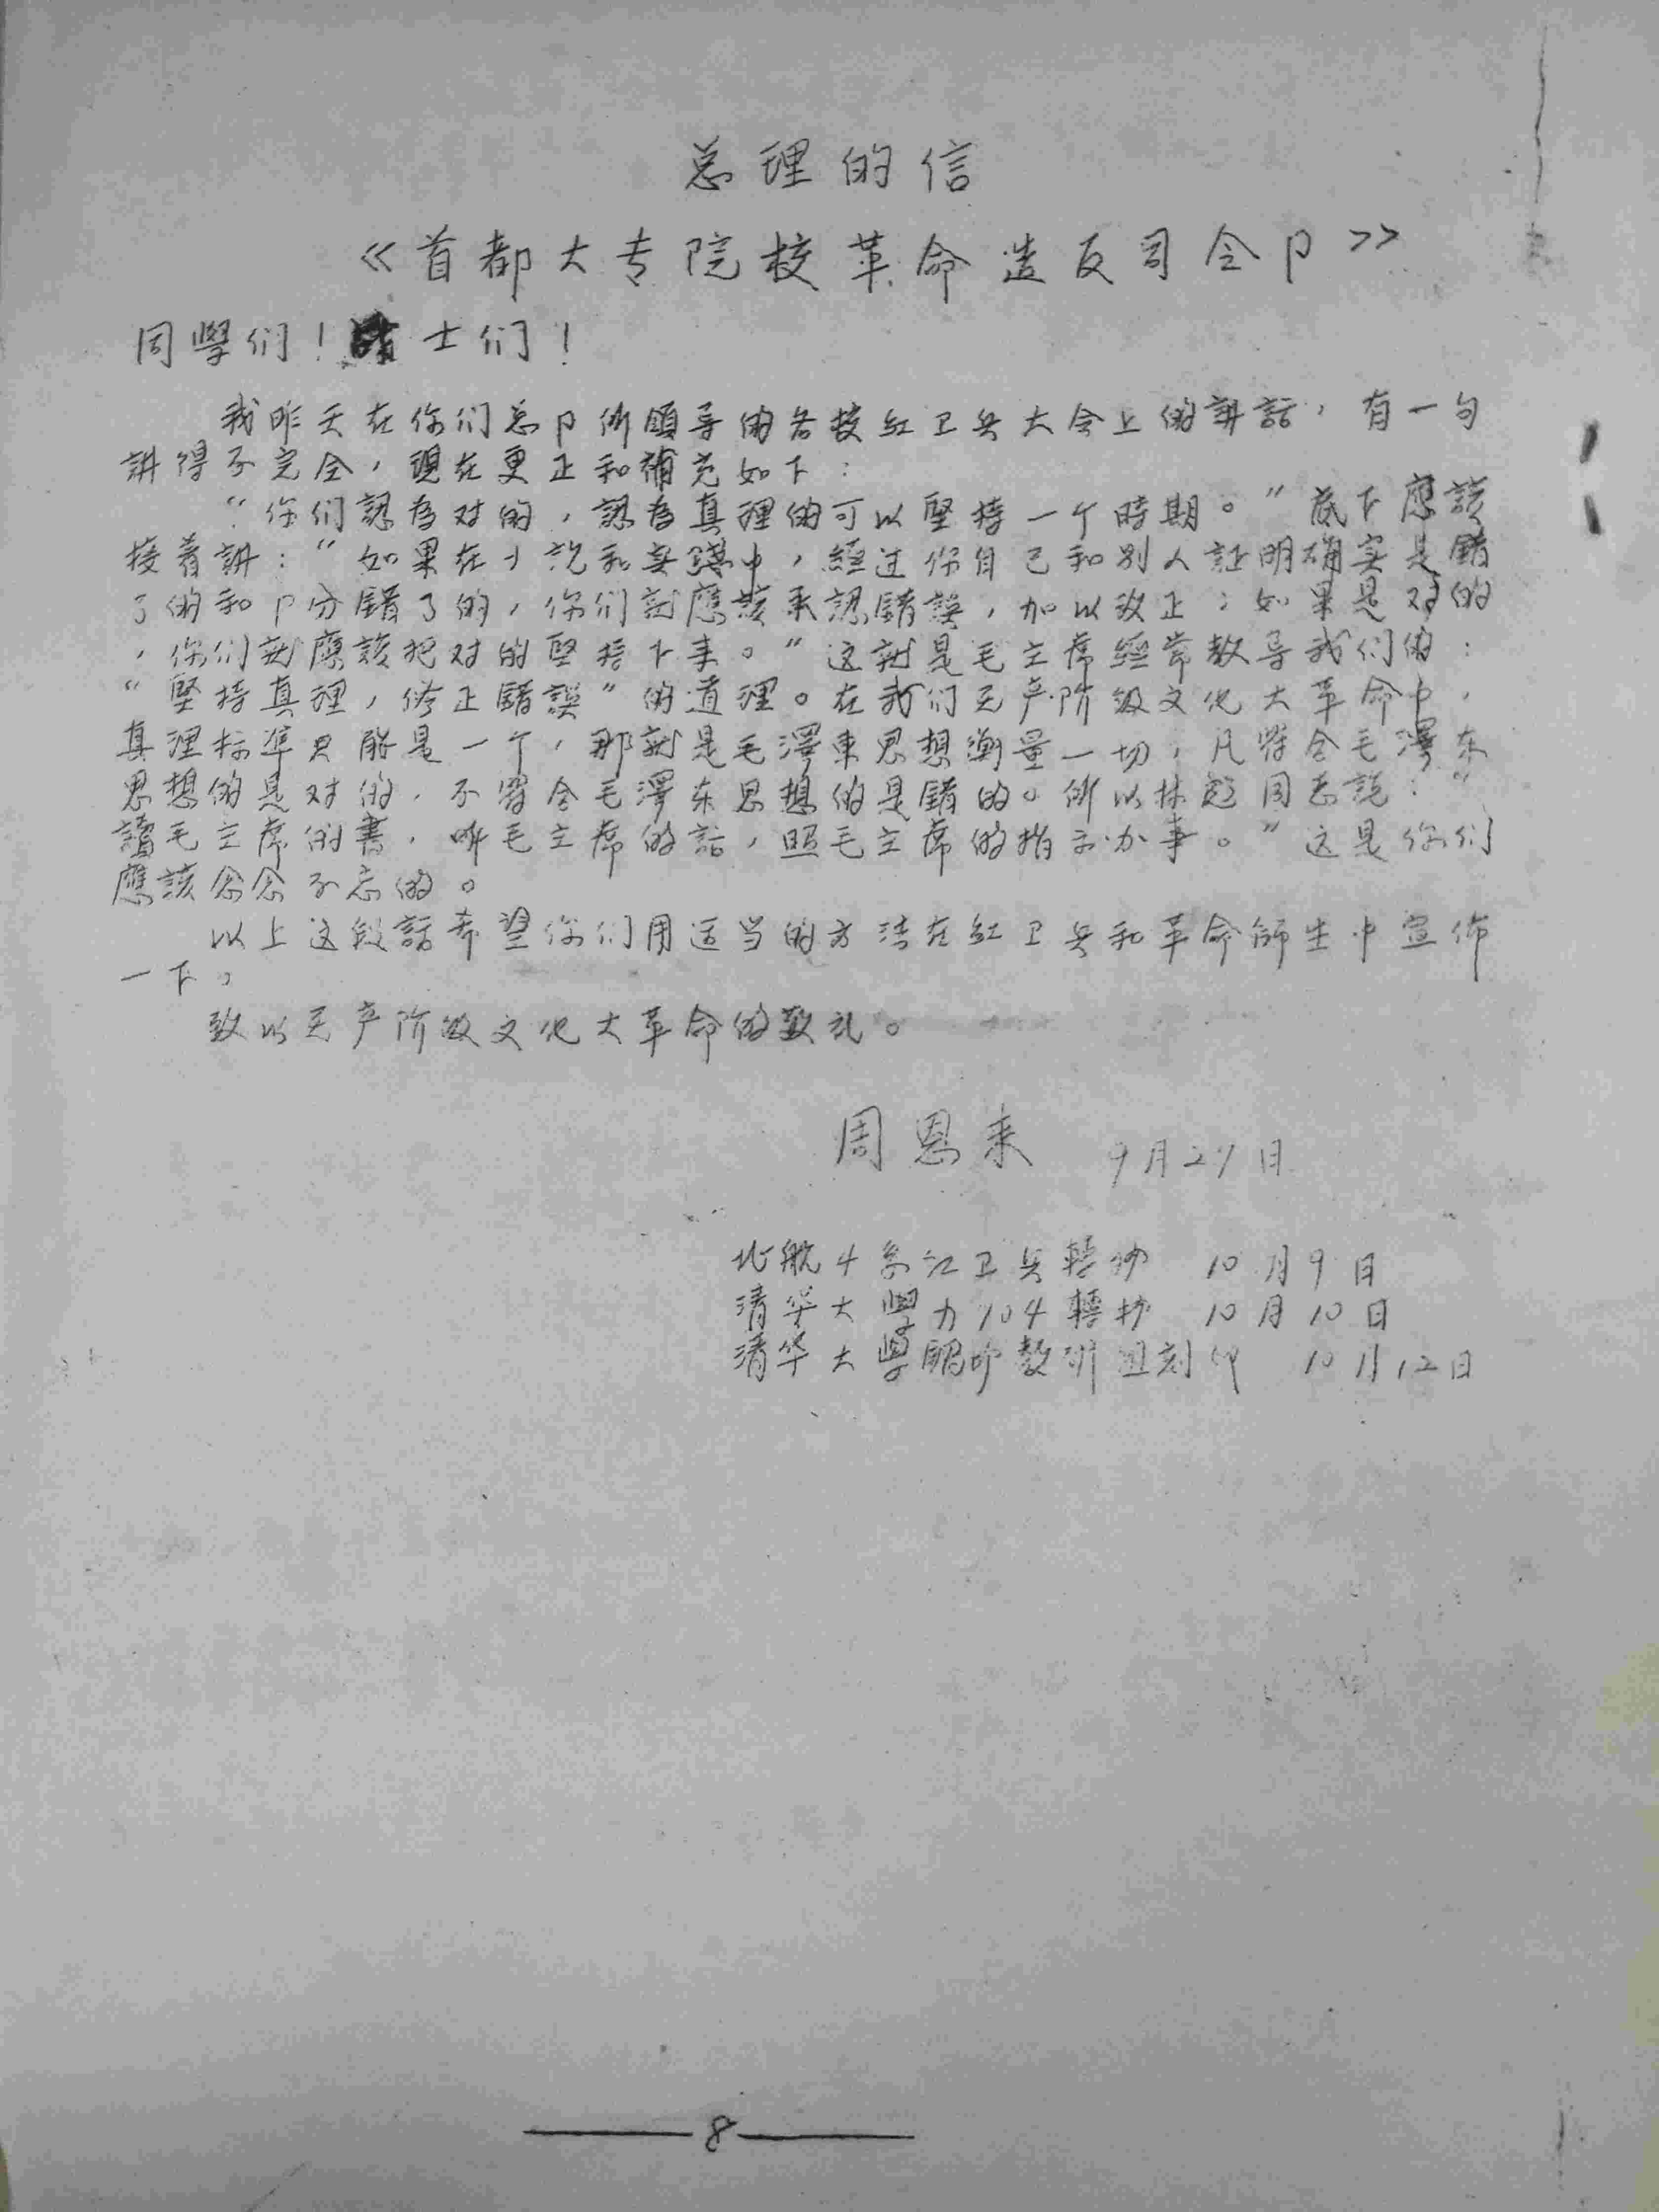 总理的信
《首都大专院校革命造反司令卩》
同學们！战士们！
我昨天在你们总卩所領导的各校紅卫兵大会上的講話，有一句
講得不完全，現在更正和補充如下：
“你们認为对的，認为真理的可以堅持一个時期。”底下應該
接着講：“如果在争論和实踐中，經过你自己和别人証明确实是錯
了的和卩分錯了的，你们就應該承認錯誤，加以改正；如果是对的
，你们就應該把对的堅持下来。”这就是毛主席經常教导我们的：
“堅持真理，修正錯誤”的道理。在我们无产阶級文化大革命中，
真理标准只能是一个，那就是毛澤東思想衡量一切，凡符合毛澤东
思想的是对的，不符合毛澤东思想的是錯的。所以林彪同志說：“
讀毛主席的書，听毛主席的話，照毛主席的指示办事。”这是你们
應該念念不忘的。
以上这段話希望你们用适当的方法在紅卫兵和革命師生中宣佈
一下。
致以无产阶级文化大革命的敬礼。
周恩来 9月27日
北航4系红卫兵轉抄 10月9日
清华大學力104轉抄 10月10日
清华大學教研组刻印 10月12日
8